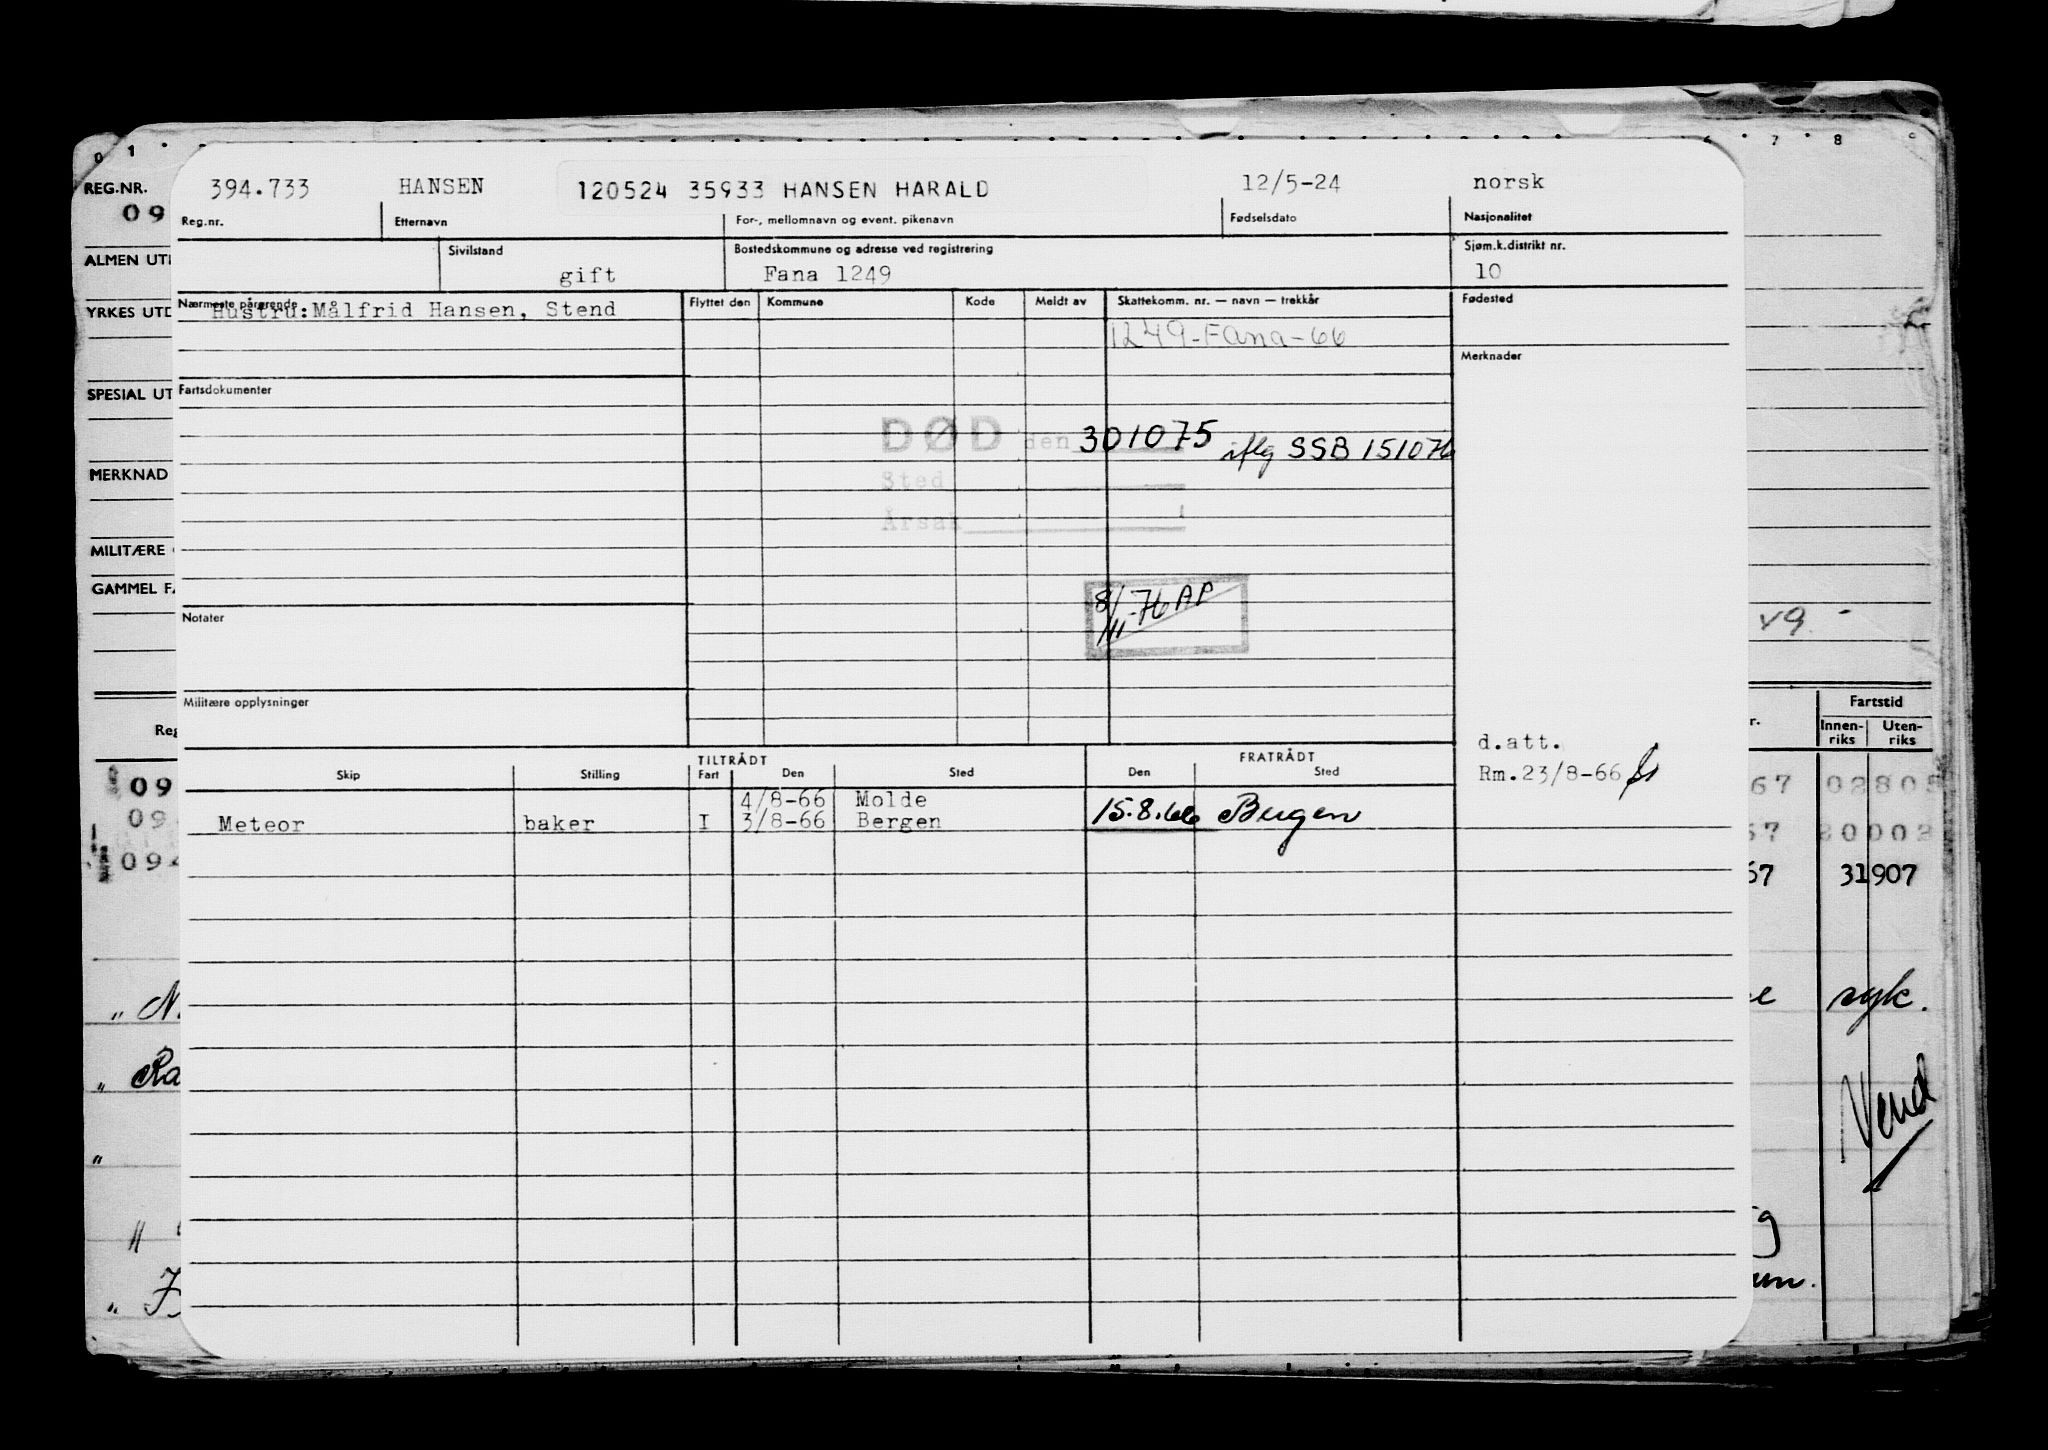 0 1 6 7 8 9
REG.NR. 394.733 HANSEN 120524 35933 HANSEN HARALD 12/5-24 norsk
09 Reg.nr. Etternavn For-, mellomnavn og event. pikenavn Fødselsdato Nasjonalitet
ALMEN UT Sivilstand Bostedskommune og adresse ved registrering Sjøm.k.distrikt nr.
gift Fana 1249 10
YRKES UTD Nærmeste pårørende Flyttet den Kommune Kode Meldt av Skattekomm. nr. — navn — trekkår Fødested
Hustru:Målfrid Hansen, Stend
1249-Fana-66
Merknader
SPESIAL UT Fartsdokumenter
DØD den 301075 iflg SSB 151076
MERKNAD Sted
Årsak
MILITÆRE
GAMMEL F
8/11-76 AP
Notater v9.-
Militære opplysninger Fartstid
Reg r. Innen-riks Uten-riks
d.att.
TILTRÅDT FRATRÅDT
Skip Stilling Fart Den Sted Den Sted Rm.23/8-66
09 4/8-66 Molde 67 02805
09 Meteor baker I 3/8-66 Bergen 15.8.66 Bergen 67 30002
094 67 31907
" N. e syk.
" Ra
Vend
"
" g
" um.